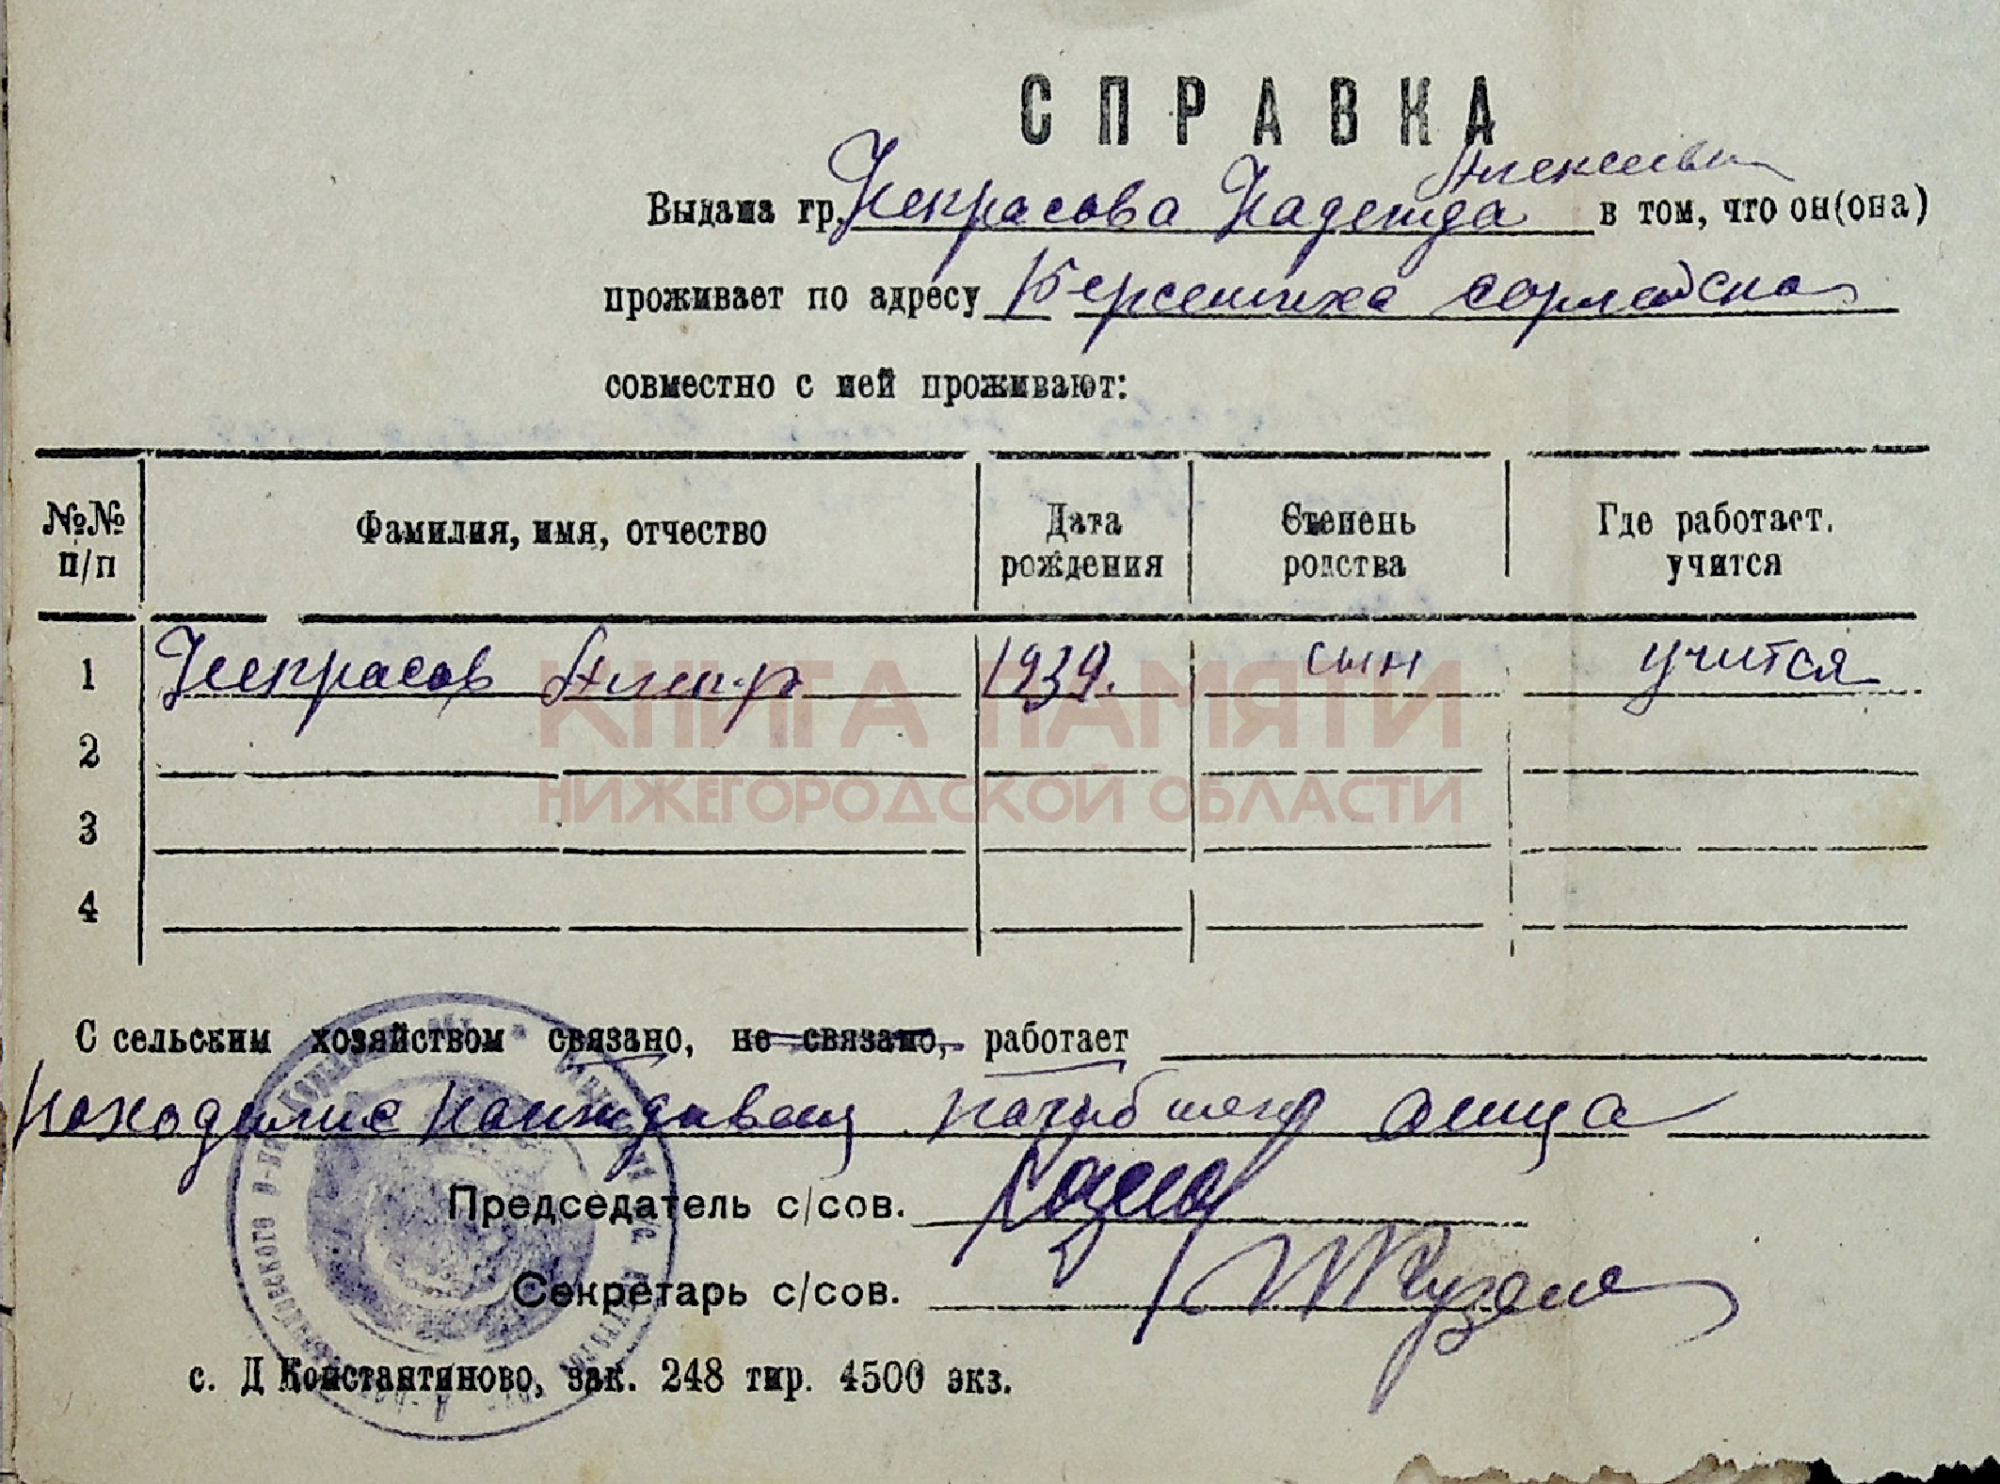 СПРАВКА
Алексеевн
Выдана гр. Некрасова Надежда в том, что он(она)
проживает по адресу
совместно с ней проживают:
№№ п/п Фамилия, имя, отчество Дата рождения Степень родства Где работает. учится
1 Некрасов Ал-р 1939. сын учится
2
3
4
КНИГА ПАМЯТИ
НИЖЕГОРОДСКОЙ ОБЛАСТИ
С сельским хозяйством связано, не связано, работает
находилис погибшего отца
Председатель с/сов.
Секретарь с/сов.
с. Д Константиново, зак. 248 тир. 4500 экз.